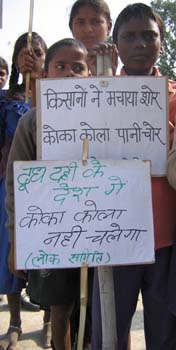 किसानो ने मचाया शोर
कोका कोला पानी चोर
दूध दही के
देश मे
कोका कोला
नही-चलेगा
(लोक समिति)